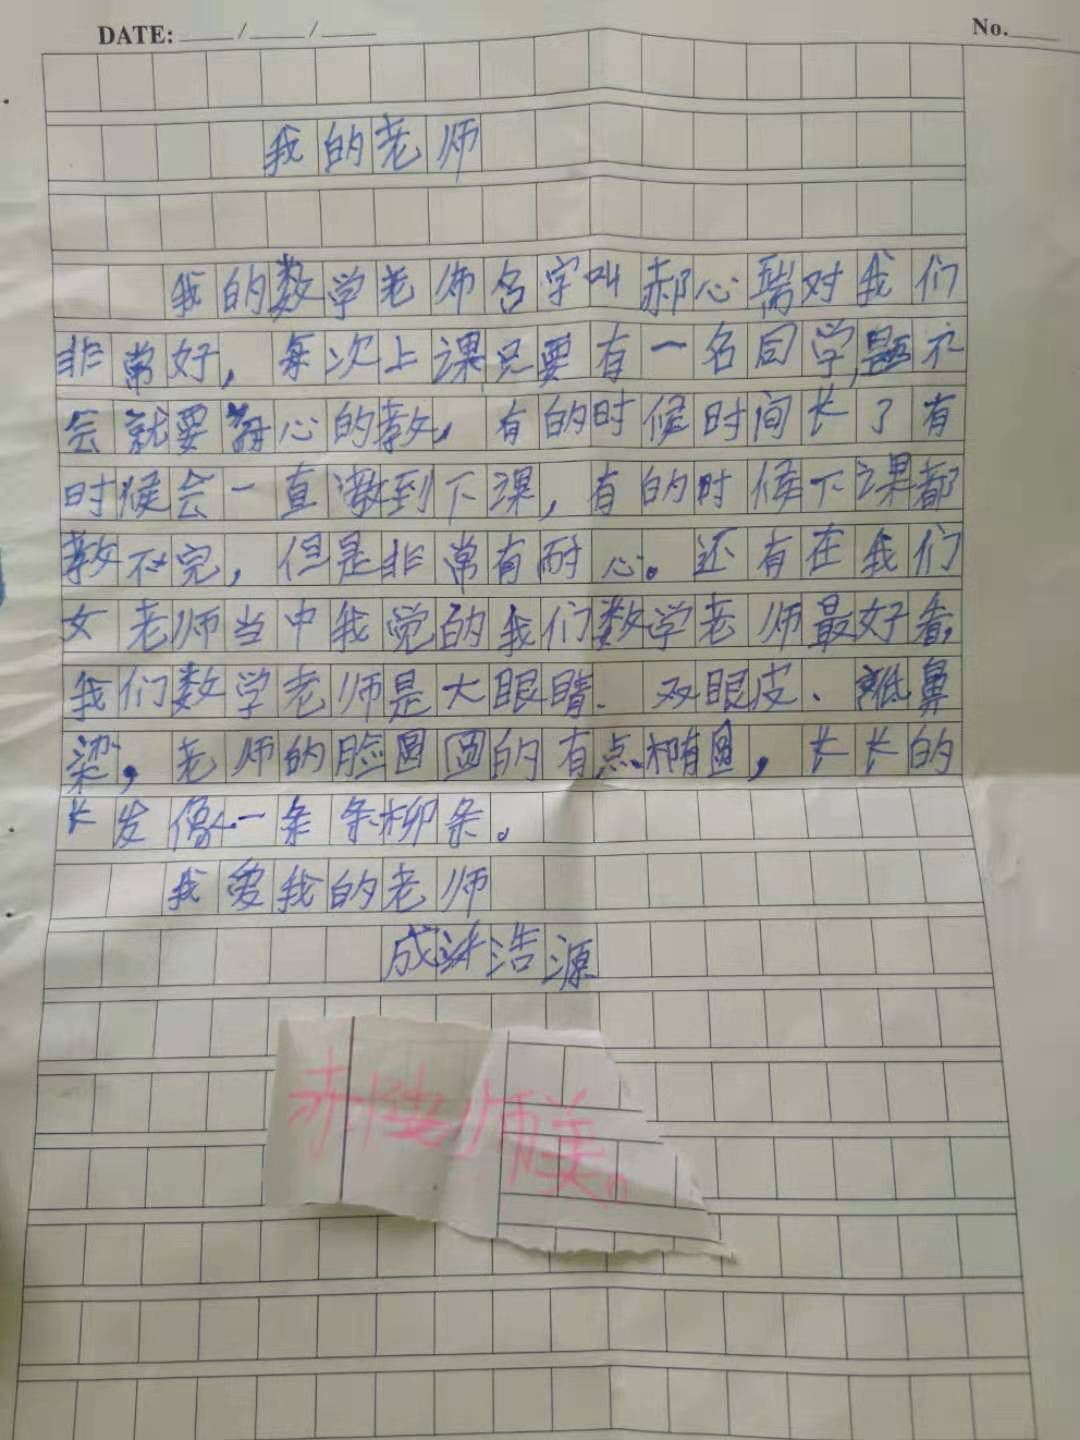 DATE: / /
No.
我的老师
我的数学老师名字叫郝心瑞对我们
非常好，每次上课只要有一名同学题不
会就要耐心的教，有的时候时间长了有
时候会一直教到下课，有的时候下课都
教不完，但是非常有耐心。还有在我们
女老师当中我觉的我们数学老师最好看，
我们数学老师是大眼睛、双眼皮、鼻
梁，老师的脸圆圆的有点椭圆，长长的
长发像一条条柳条。
我爱我的老师
成浩源
郝老师美。